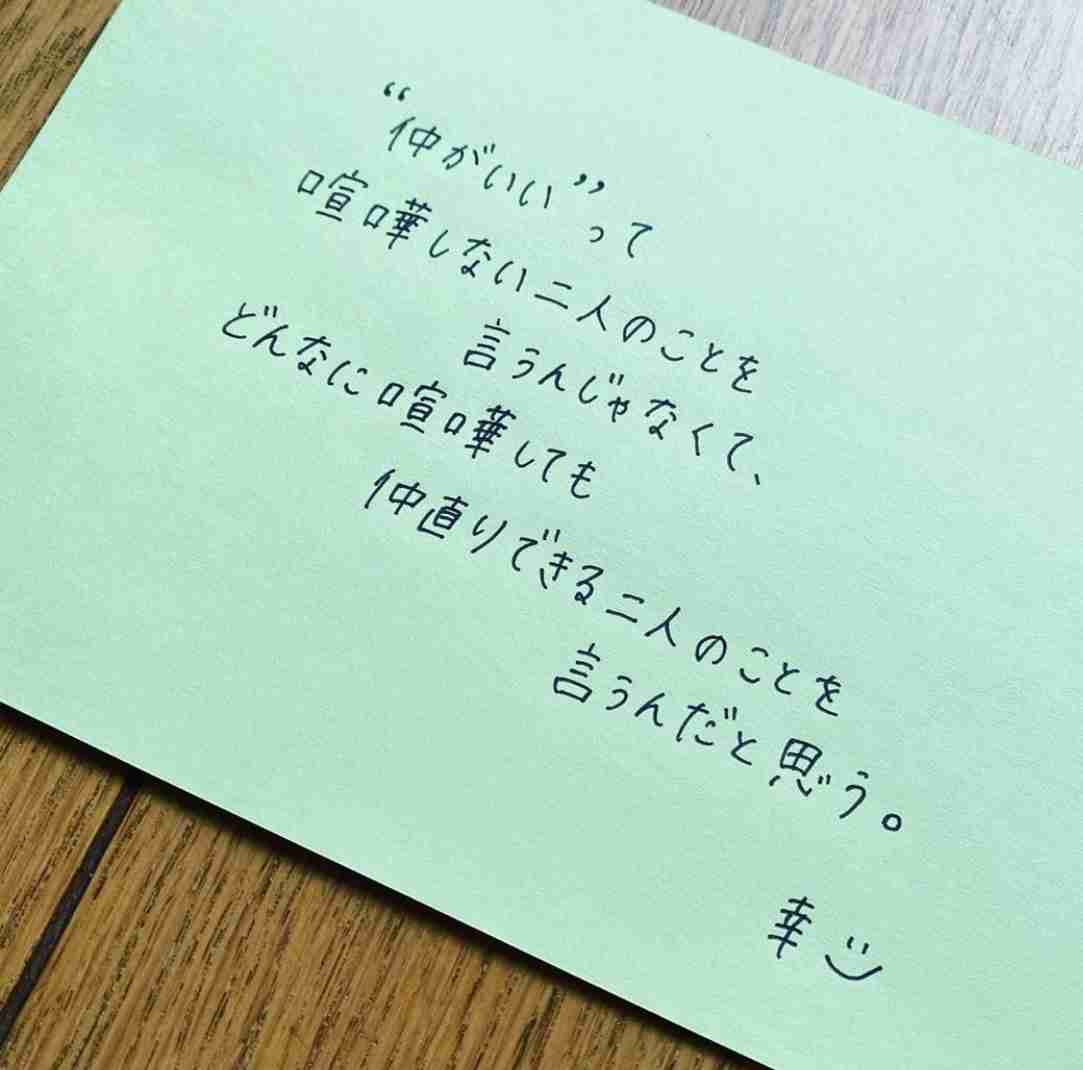 “仲がいい”って
喧嘩しない二人のことを
言うんじゃなくて、
どんなに喧嘩しても
仲直りできる二人のことを
言うんだと思う。
幸